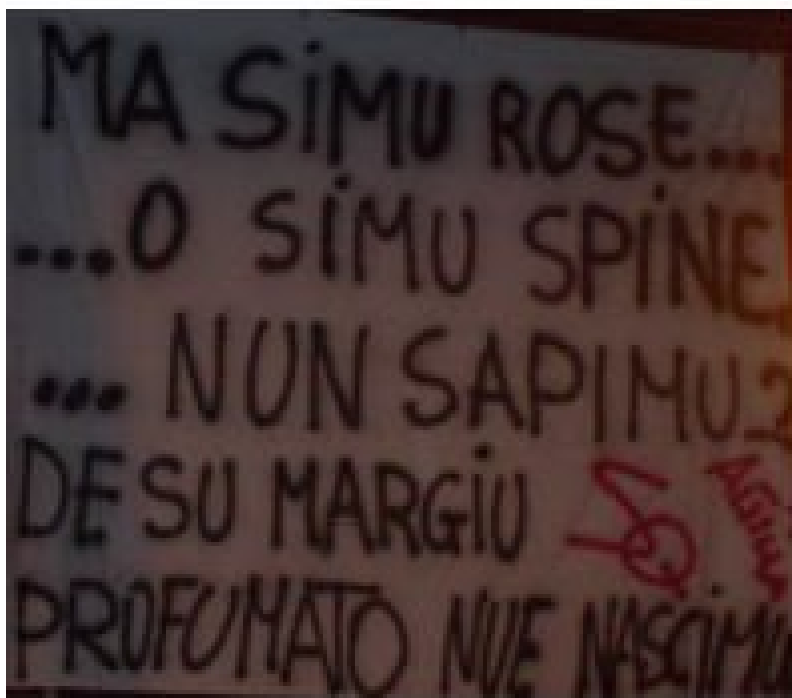 MA SiMU ROSE...
...O SiMU SPiNE.
... NUN SAPIMU ?
DE SU MARGiU
PROFUMATO NUE NASCiMU